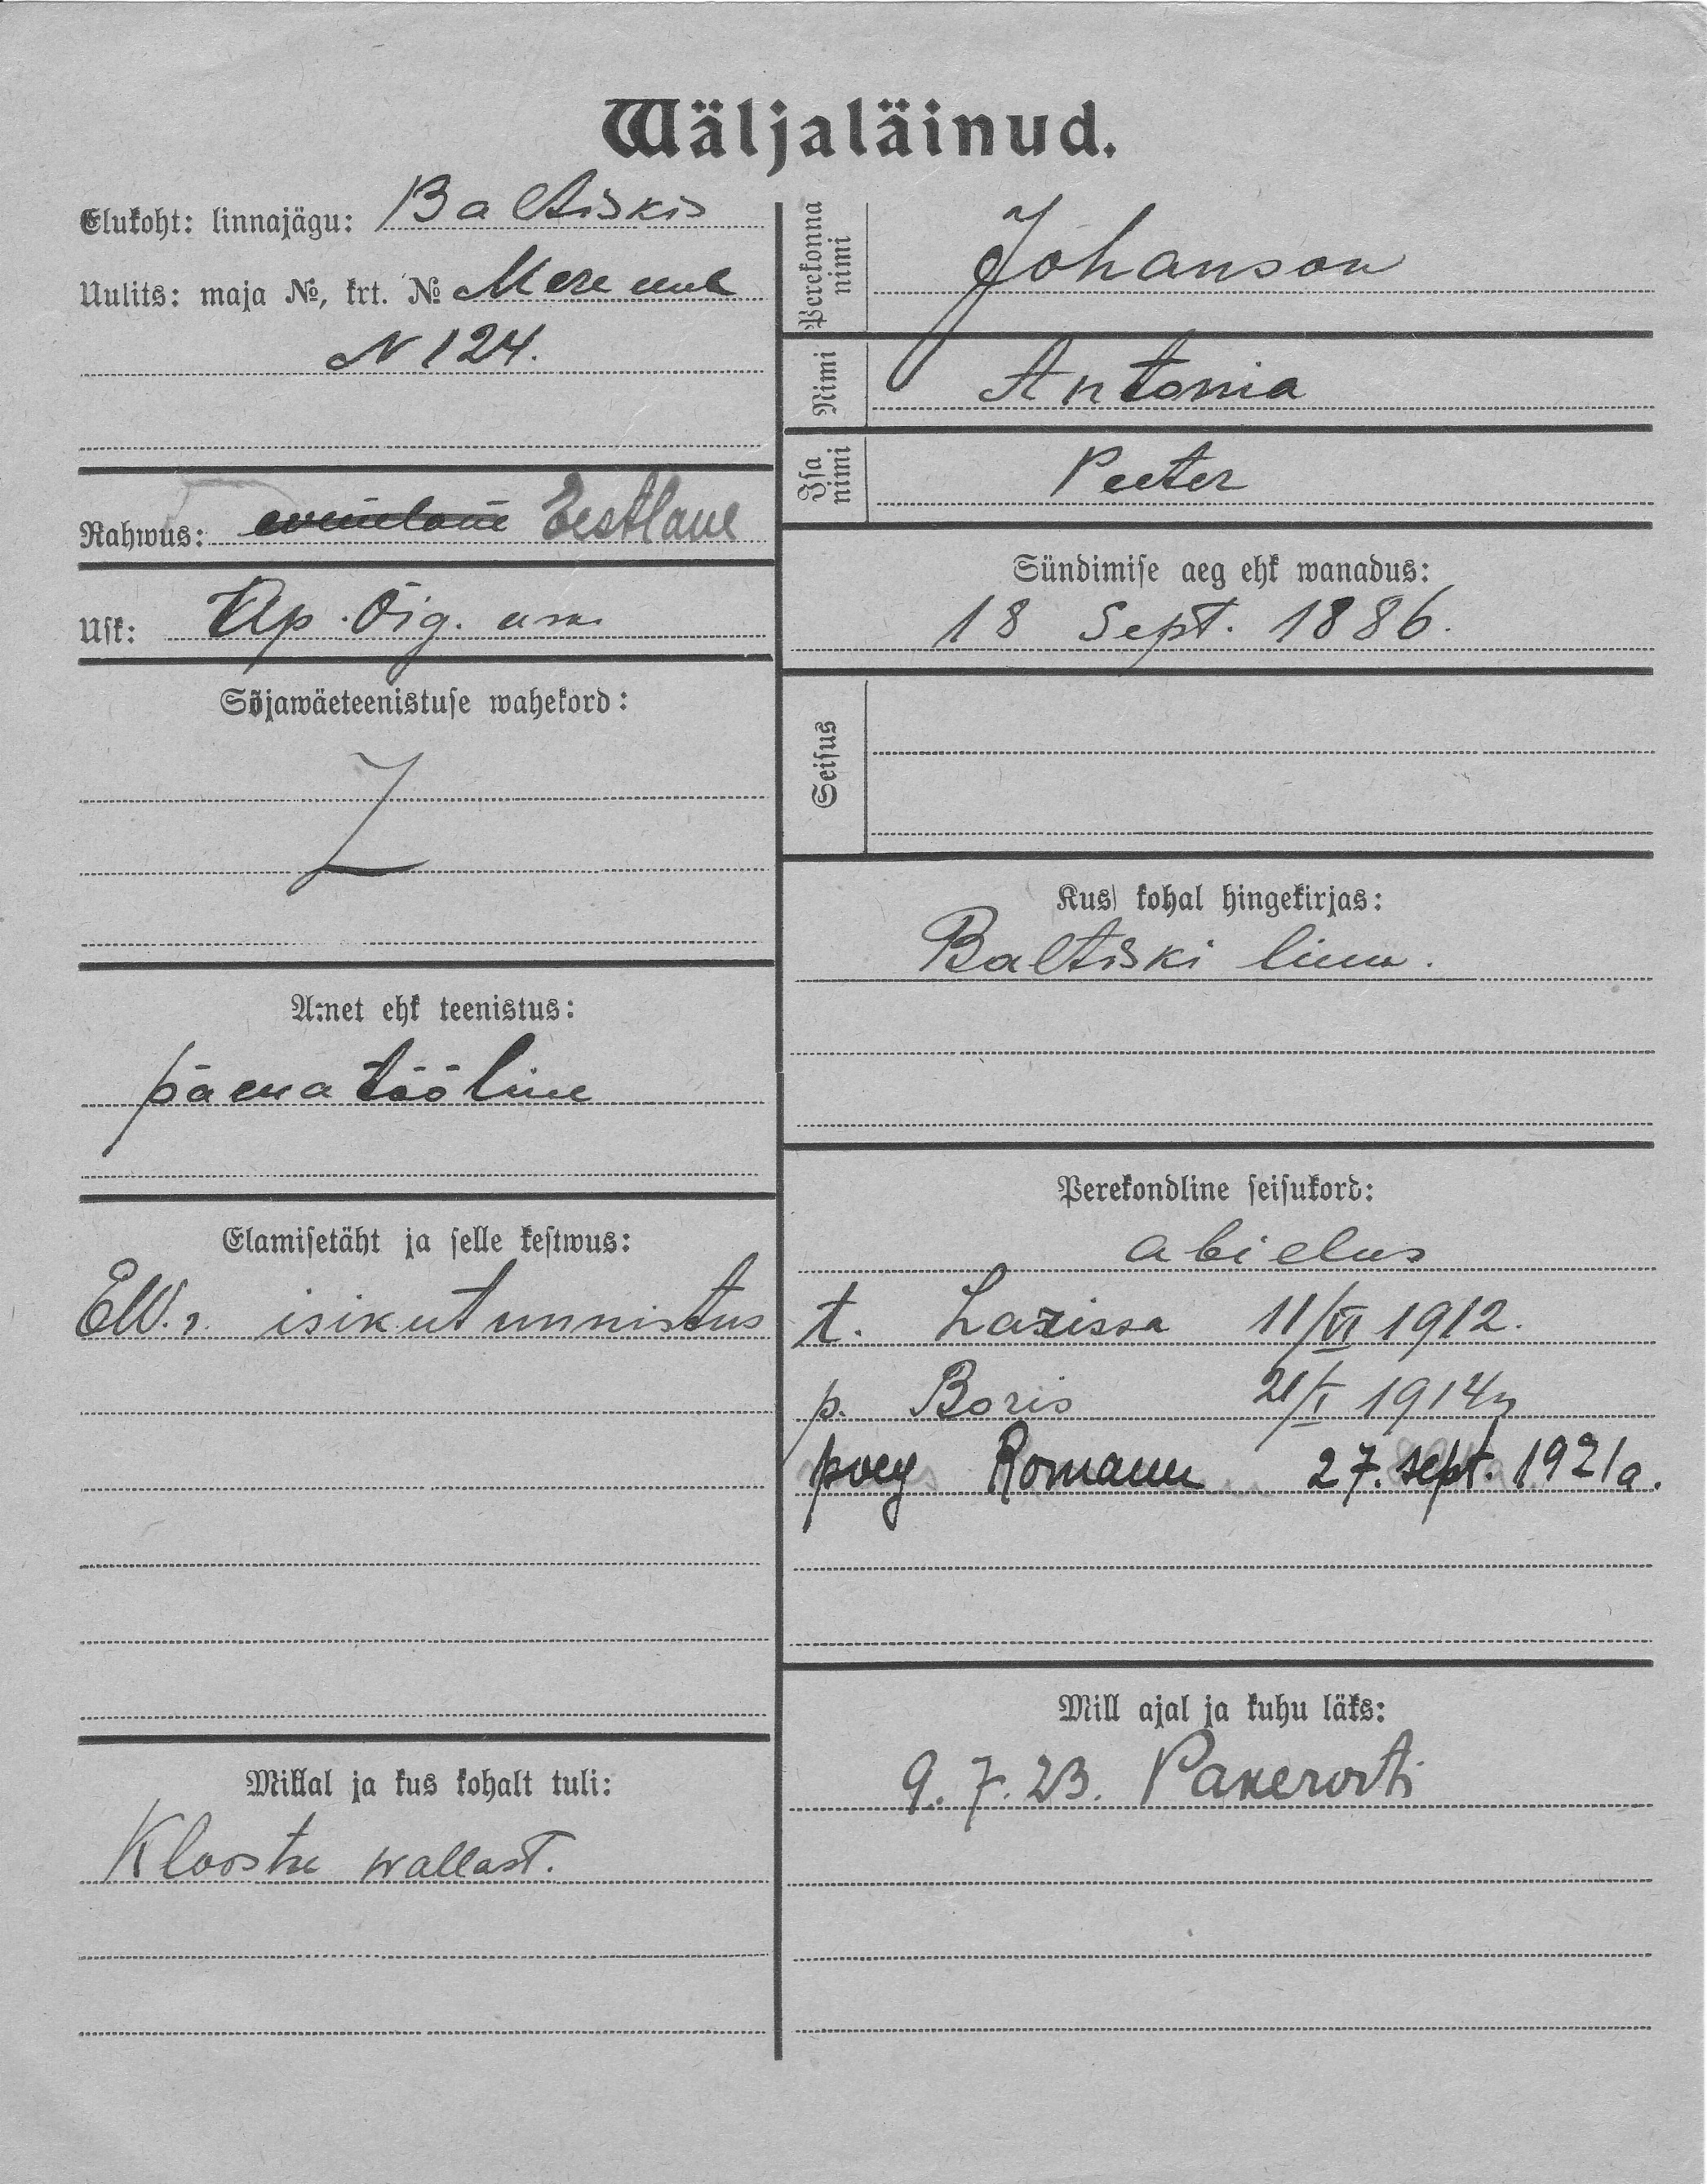 Wäljaläinud.
Elukoht: linnajägu: Baltiskis
Uulits: maja №, krt. № Mere uul
N 124.
Rahwus: wenelane Eestlane
Usk: Ap. õig. usu
Sõjawäeteenistuse wahekord:
Amet ehk teenistus:
päewa tööline
Elamisetäht ja selle kestwus:
EW. isikutunnistus
Millal ja kus kohalt tuli:
Kloostri wallast.
Perekonna nimi
Johanson
Nimi
Antonia
Isa nimi
Peeter
Sündimise aeg ehk wanadus:
18 Sept. 1886.
Seisus
Kus kohal hingekirjas:
Baltiski linn.
Perekondline seisukord:
abielus
t. Larissa 11/VI 1912.
p. Boris 21/I 1914
poeg Romann 27. sept. 1921a.
Mill ajal ja kuhu läks:
9.7.23. Pakerorti